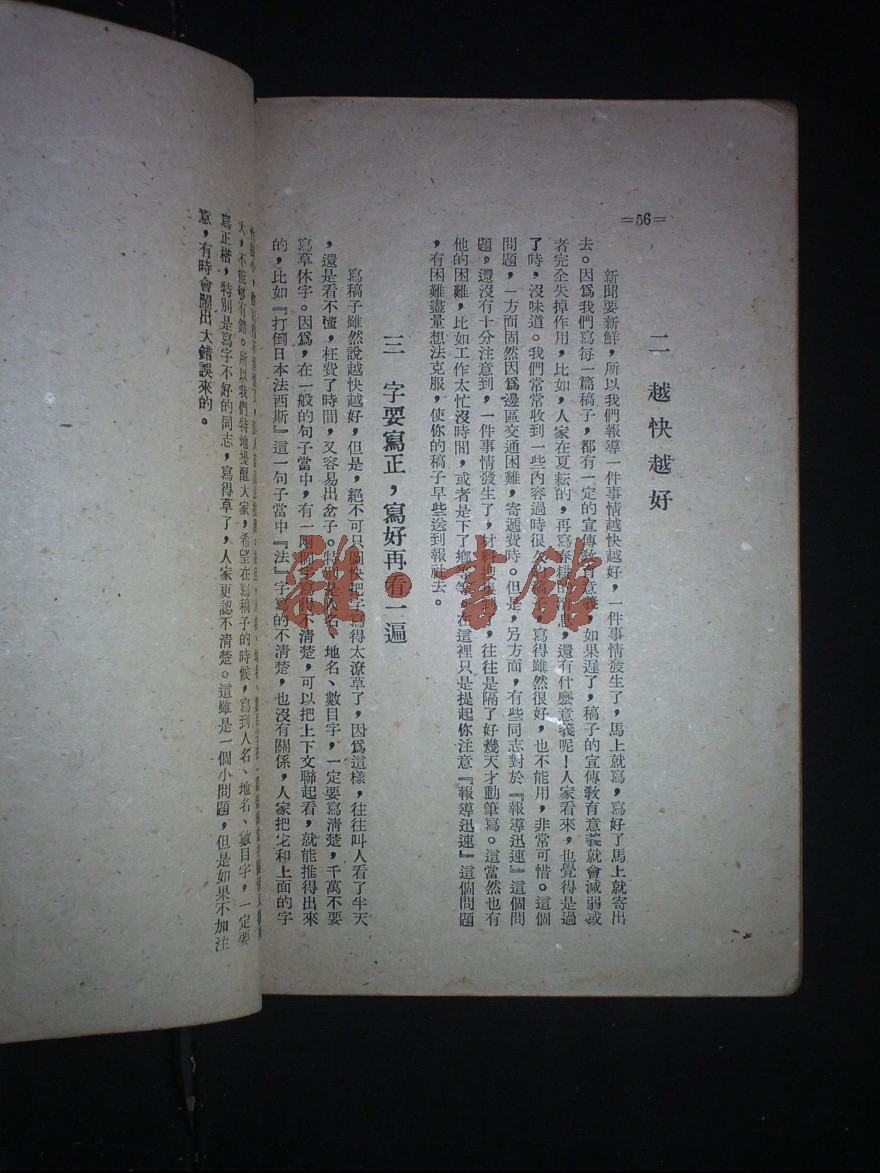 =56=
二 越快越好
新聞要新鮮，所以我們報導一件事情越快越好，一件事情發生了，馬上就寫，寫好了馬上就寄出
去。因爲我們寫每一篇稿子，都有一定的宣傳敎育意義，如果遲了，稿子的宣傳敎育意義就會減弱或
者完全失掉作用，比如，人家在夏耘的，再寫春耕的消息，還有什麼意義呢！人家看來，也覺得是過
了時，沒味道。我們常常收到一些內容過時很久的稿，寫得雖然很好，也不能用，非常可惜。這個
問題，一方面固然因爲邊區交通困難，寄遞費時。但是，另方面，有些同志對於『報導迅速』這個問
題，還沒有十分注意到，一件事情發生了，材料搜集，往往是隔了好幾天才動筆寫。這當然也有
他的困難，比如工作太忙沒時間，或者是下了鄉等等，在這裡只是提起你注意『報導迅速』這個問題
，有困難盡量想法克服，使你的稿子早些送到報社去。
三 字要寫正，寫好再看一遍
寫稿子雖然說越快越好，但是，絕不可只圖快把字寫得太潦草了，因爲這樣，往往叫人看了半天
，還是看不懂，枉費了時間，又容易出岔子。特別是人名、地名、數目字，一定要寫清楚，千萬不要
寫草体字。因爲，在一般的句子當中，有一兩個字寫得不清楚，可以把上下文聯起看，就能推得出來
的，比如『打倒日本法西斯』這一句子當中『法』字寫的不清楚，也沒有關係，人家把它和上面的字
大，不能够有錯。所以我們特地提醒大家，希望在寫稿子的時候，寫到人名、地名、數目字，一定要
寫正楷，特別是寫字不好的同志，寫得草了，人家更認不清楚。這雖是一個小問題，但是如果不加注
意，有時會鬧出大錯誤來的。
雜·書館